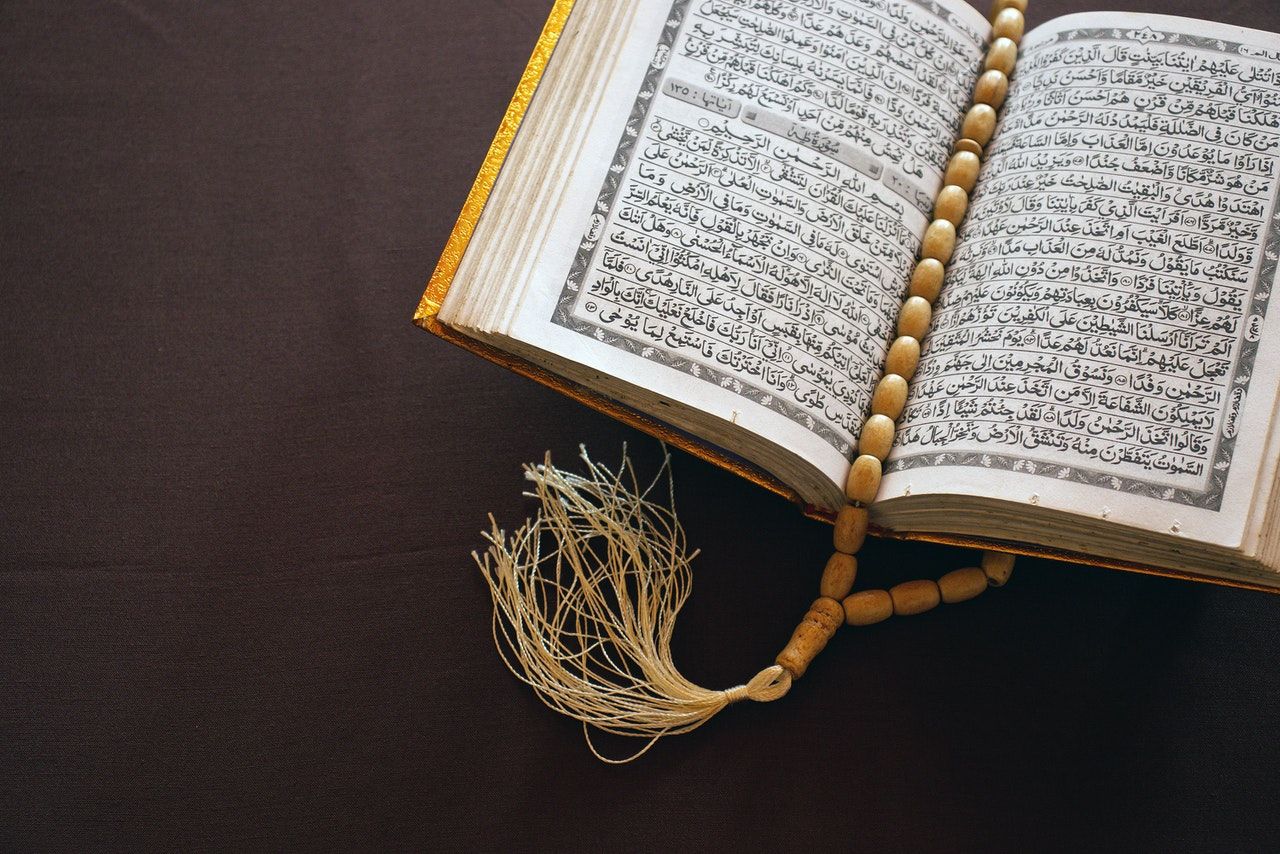 ٢٤٨
ذَا تُتْلٰى عَلَيْهِمْ اٰيٰتُنَا بَيِّنٰتٍ قَالَ الَّذِيْنَ كَفَرُوْا
اَيُّ الْفَرِيْقَيْنِ خَيْرٌ مَّقَامًا وَّاَحْسَنُ نَدِيًّا
هْلَكْنَا قَبْلَهُمْ مِّنْ قَرْنٍ هُمْ اَحْسَنُ اَثَاثًا
مَنْ كَانَ فِى الضَّلٰلَةِ فَلْيَمْدُدْ لَهُ الرَّحْمٰنُ مَدًّا
اِذَا رَاَوْا مَا يُوْعَدُوْنَ اِمَّا الْعَذَابَ وَاِمَّا
مَنْ هُوَ شَرٌّ مَّكَانًا وَّاَضْعَفُ جُنْدًا وَيَزِيْدُ اللّٰهُ
اهْتَدَوْا هُدًى وَالْبٰقِيٰتُ الصّٰلِحٰتُ خَيْرٌ عِنْدَ رَبِّكَ
وَّخَيْرٌ مَّرَدًّا اَفَرَءَيْتَ الَّذِيْ كَفَرَ بِاٰيٰتِنَا وَقَالَ
وَّوَلَدًا اَطَّلَعَ الْغَيْبَ اَمِ اتَّخَذَ عِنْدَ الرَّحْمٰنِ عَهْدًا
سَنَكْتُبُ مَا يَقُوْلُ وَنَمُدُّ لَهٗ مِنَ الْعَذَابِ مَدًّا
يَقُوْلُ وَيَاْتِيْنَا فَرْدًا وَاتَّخَذُوْا مِنْ دُوْنِ اللّٰهِ اٰلِهَةً
لَهُمْ عِزًّا كَلَّا سَيَكْفُرُوْنَ بِعِبَادَتِهِمْ وَيَكُوْنُوْنَ عَلَيْهِمْ
اَلَمْ تَرَ اَنَّآ اَرْسَلْنَا الشَّيٰطِيْنَ عَلَى الْكٰفِرِيْنَ تَؤُزُّهُمْ اَزًّا
تَعْجَلْ عَلَيْهِمْ اِنَّمَا نَعُدُّ لَهُمْ عَدًّا يَوْمَ نَحْشُرُ الْمُتَّقِيْنَ
الرَّحْمٰنِ وَفْدًا وَنَسُوْقُ الْمُجْرِمِيْنَ اِلٰى جَهَنَّمَ وِرْدًا
لَا يَمْلِكُوْنَ الشَّفَاعَةَ اِلَّا مَنِ اتَّخَذَ عِنْدَ الرَّحْمٰنِ عَهْدًا
وَقَالُوا اتَّخَذَ الرَّحْمٰنُ وَلَدًا لَقَدْ جِئْتُمْ شَيْـًٔا اِدًّا تَكَادُ
السَّمٰوٰتُ يَتَفَطَّرْنَ مِنْهُ وَتَنْشَقُّ الْاَرْضُ وَتَخِرُّ الْجِبَالُ هَدًّا
وَلَدًا
كُلُّ مَنْ فِى السَّمٰوٰتِ وَالْاَرْضِ
لَقَدْ اَحْصٰىهُمْ وَعَدَّهُمْ عَدًّا
اِنَّ الَّذِيْنَ اٰمَنُوْا وَعَمِلُوا الصّٰلِحٰتِ سَيَجْعَلُ
فَاِنَّمَا يَسَّرْنٰهُ بِلِسَانِكَ لِتُبَشِّرَ بِهِ
وَتُنْذِرَ بِهٖ قَوْمًا لُّدًّا وَكَمْ اَهْلَكْنَا قَبْلَهُمْ مِّنْ قَرْنٍ
هَلْ تُحِسُّ مِنْهُمْ مِّنْ اَحَدٍ اَوْ تَسْمَعُ لَهُمْ رِكْزًا
سُوْرَةُ طٰهٰ
اٰيَاتُهَا : ١٣٥
بِسْمِ اللّٰهِ الرَّحْمٰنِ الرَّحِيْمِ
اَنْزَلْنَا عَلَيْكَ الْقُرْاٰنَ لِتَشْقٰى اِلَّا تَذْكِرَةً لِّمَنْ يَّخْشٰى
مِّمَّنْ خَلَقَ الْاَرْضَ وَالسَّمٰوٰتِ الْعُلٰى اَلرَّحْمٰنُ عَلَى
اسْتَوٰى لَهٗ مَا فِى السَّمٰوٰتِ وَمَا فِى الْاَرْضِ وَمَا
وَمَا تَحْتَ الثَّرٰى وَاِنْ تَجْهَرْ بِالْقَوْلِ فَاِنَّهٗ يَعْلَمُ السِّرَّ
اَللّٰهُ لَآ اِلٰهَ اِلَّا هُوَ لَهُ الْاَسْمَآءُ الْحُسْنٰى وَهَلْ اَتٰىكَ
مُوْسٰى اِذْ رَاٰ نَارًا فَقَالَ لِاَهْلِهِ امْكُثُوْٓا اِنِّيْٓ اٰنَسْتُ
اٰتِيْكُمْ مِّنْهَا بِقَبَسٍ اَوْ اَجِدُ عَلَى النَّارِ هُدًى فَلَمَّآ
نُوْدِيَ يٰمُوْسٰى اِنِّيْٓ اَنَا رَبُّكَ فَاخْلَعْ نَعْلَيْكَ اِنَّكَ بِالْوَادِ
الْمُقَدَّسِ طُوًى وَاَنَا اخْتَرْتُكَ فَاسْتَمِعْ لِمَا يُوْحٰى